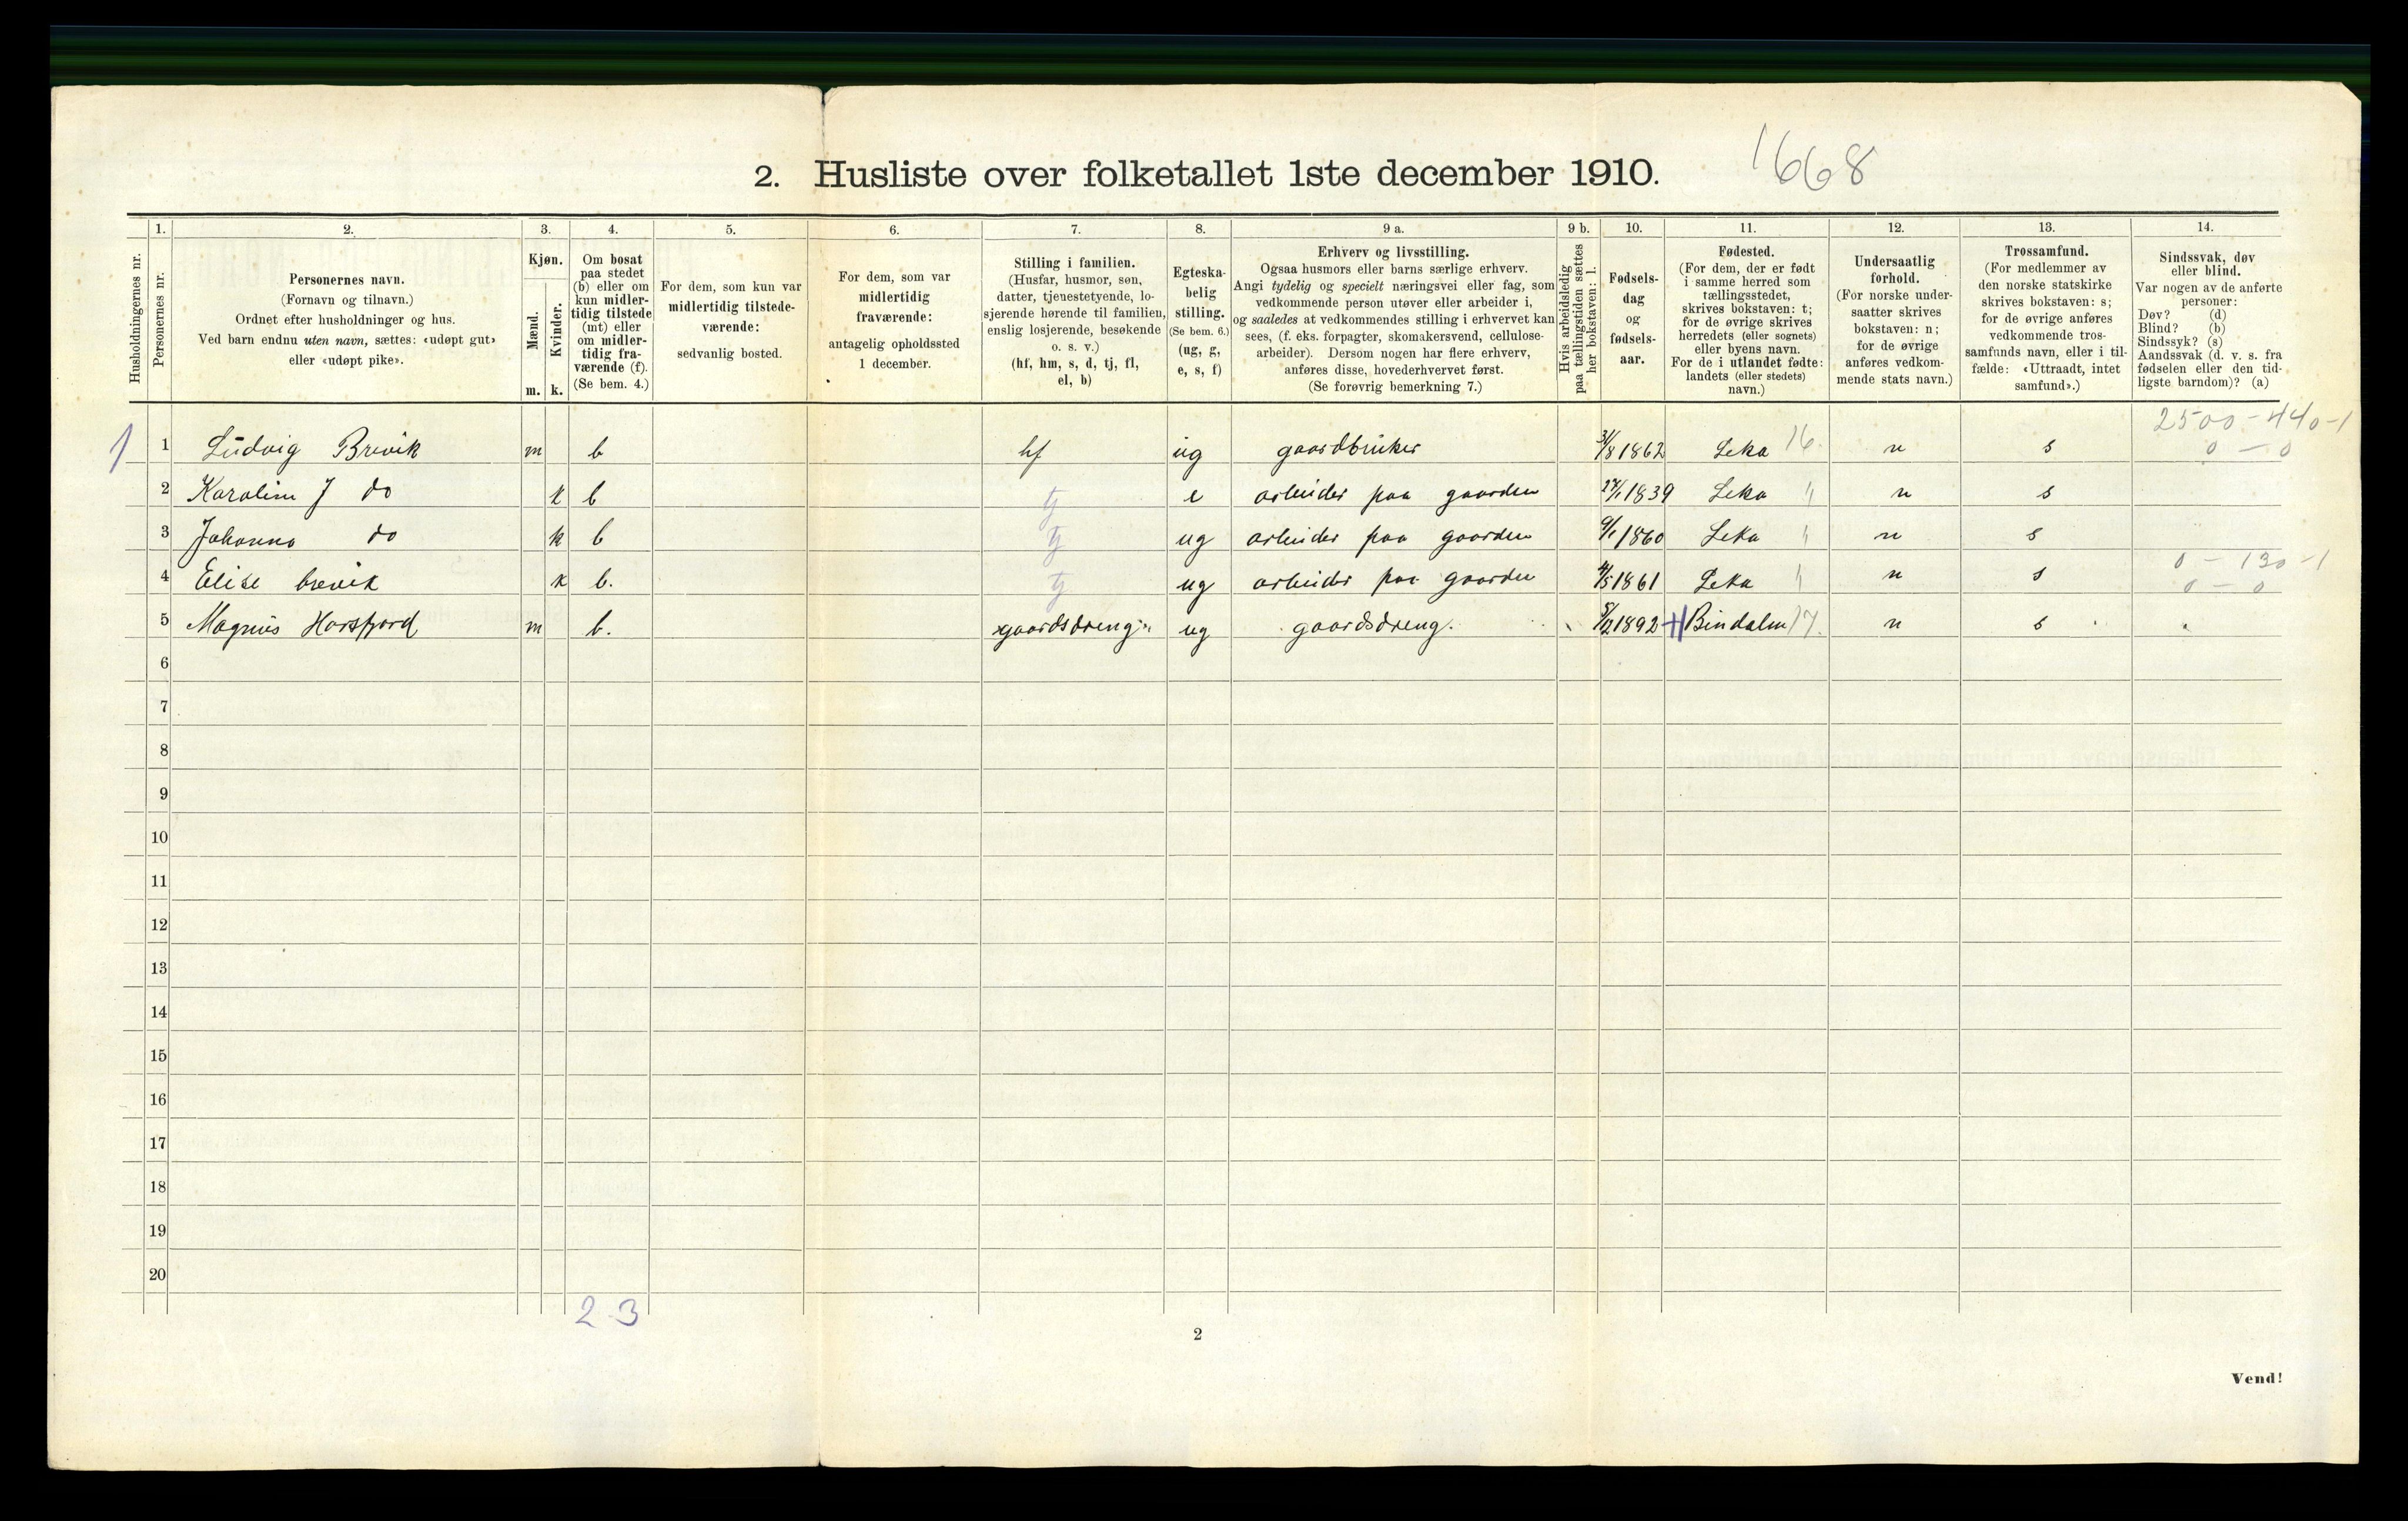 2. Husliste over folketallet 1ste december 1910. 1668
1. 2. 3. 4. 5. 6. 7. 8. 9 a. 9 b. 10. 11. 12. 13. 14.
Husholdningernes nr.
Personernes nr.
Personernes navn.
(Fornavn og tilnavn.)
Ordnet efter husholdninger og hus.
Ved barn endnu uten navn, sættes: «udøpt gut»
eller «udøpt pike».
Kjøn.
Mænd.
Kvinder.
m. k.
Om bosat
paa stedet
(b) eller om
kun midler-
tidig tilstede
(mt) eller
om midler-
tidig fra-
værende (f).
(Se bem. 4.)
For dem, som kun var
midlertidig tilstede-
værende:
sedvanlig bosted.
For dem, som var
midlertidig
fraværende:
antagelig opholdssted
1 december.
Stilling i familien.
(Husfar, husmor, søn,
datter, tjenestetyende, lo-
sjerende hørende til familien,
enslig losjerende, besøkende
o. s. v.)
(hf, hm, s, d, tj, fl,
el, b)
Egteska-
belig
stilling.
(Se bem. 6.)
(ug, g,
e, s, f)
Erhverv og livsstilling.
Ogsaa husmors eller barns særlige erhverv.
Angi tydelig og specielt næringsvei eller fag, som
vedkommende person utøver eller arbeider i,
og saaledes at vedkommendes stilling i erhvervet kan
sees, (f. eks. forpagter, skomakersvend, cellulose-
arbeider). Dersom nogen har flere erhverv,
anføres disse, hovederhvervet først.
(Se forøvrig bemerkning 7.)
Hvis arbeidsledig
paa tællingstiden sættes
her bokstaven: l.
Fødsels-
dag
og
fødsels-
aar.
Fødested.
(For dem, der er født
i samme herred som
tællingsstedet,
skrives bokstaven: t;
for de øvrige skrives
herredets (eller sognets)
eller byens navn.
For de i utlandet fødte:
landets (eller stedets)
navn.)
Undersaatlig
forhold.
(For norske under-
saatter skrives
bokstaven: n;
for de øvrige
anføres vedkom-
mende stats navn.)
Trossamfund.
(For medlemmer av
den norske statskirke
skrives bokstaven: s;
for de øvrige anføres
vedkommende tros-
samfunds navn, eller i til-
fælde: «Uttraadt, intet
samfund».)
Sindssvak, døv
eller blind.
Var nogen av de anførte
personer:
Døv? (d)
Blind? (b)
Sindssyk? (s)
Aandssvak (d. v. s. fra
fødselen eller den tid-
ligste barndom)? (a)
2500 - 440 - 1
1 1 Ludvig Brevik m b hf ug gaardbruker 31/8 1862 Leka 16. n s 0 - 0
2 Karoline J do k b tj e arbeider paa gaarden 27/1 1839 Leka " n s
3 Johanna do k b tj ug arbeider paa gaarden 9/1 1860 Leka " n s
0 - 130 - 1
4 Elise brevik k b. tj ug arbeider paa gaarden 4/5 1861 Leka " n s 0 - 0
5 Magnus Horsfjord m b. gaardsdreng ug gaardsdreng. 5/12 1892 Bindalen 17. n s
6
7
8
9
10
11
12
13
14
15
16
17
18
19
20
2 3
2
Vend!